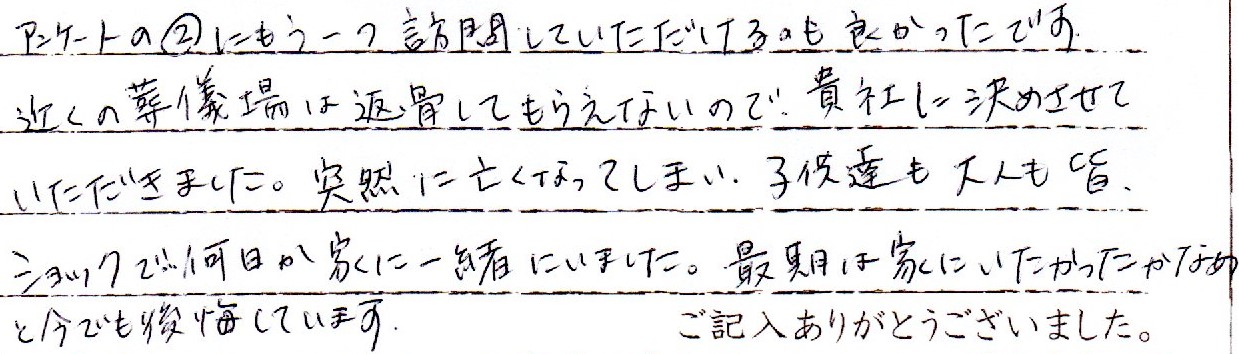 アンケートの②にもう一つ訪問していただけるのも良かったです.
近くの葬儀場は返骨してもらえないので、貴社に決めさせて
いただきました。突然に亡くなってしまい、子供達も大人も皆、
ショックで何日か家に一緒にいました。最期は家にいたかったかなぁ
と今でも後悔しています.
ご記入ありがとうございました。